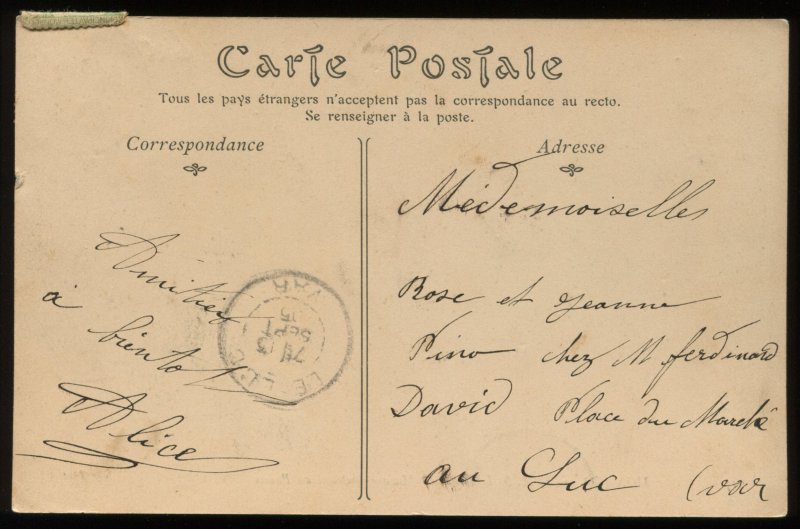 Carte Postale
Tous les pays étrangers n'acceptent pas la correspondance au recto.
Se renseigner à la poste.
Correspondance
Amitiés
à bientôt
Alice
LE LUC
VAR
13
SEPT
05
Adresse
Médemoiselles
Rose et Jeanne
Pino chez M ferdinard
David Place du Marché
au Luc (var